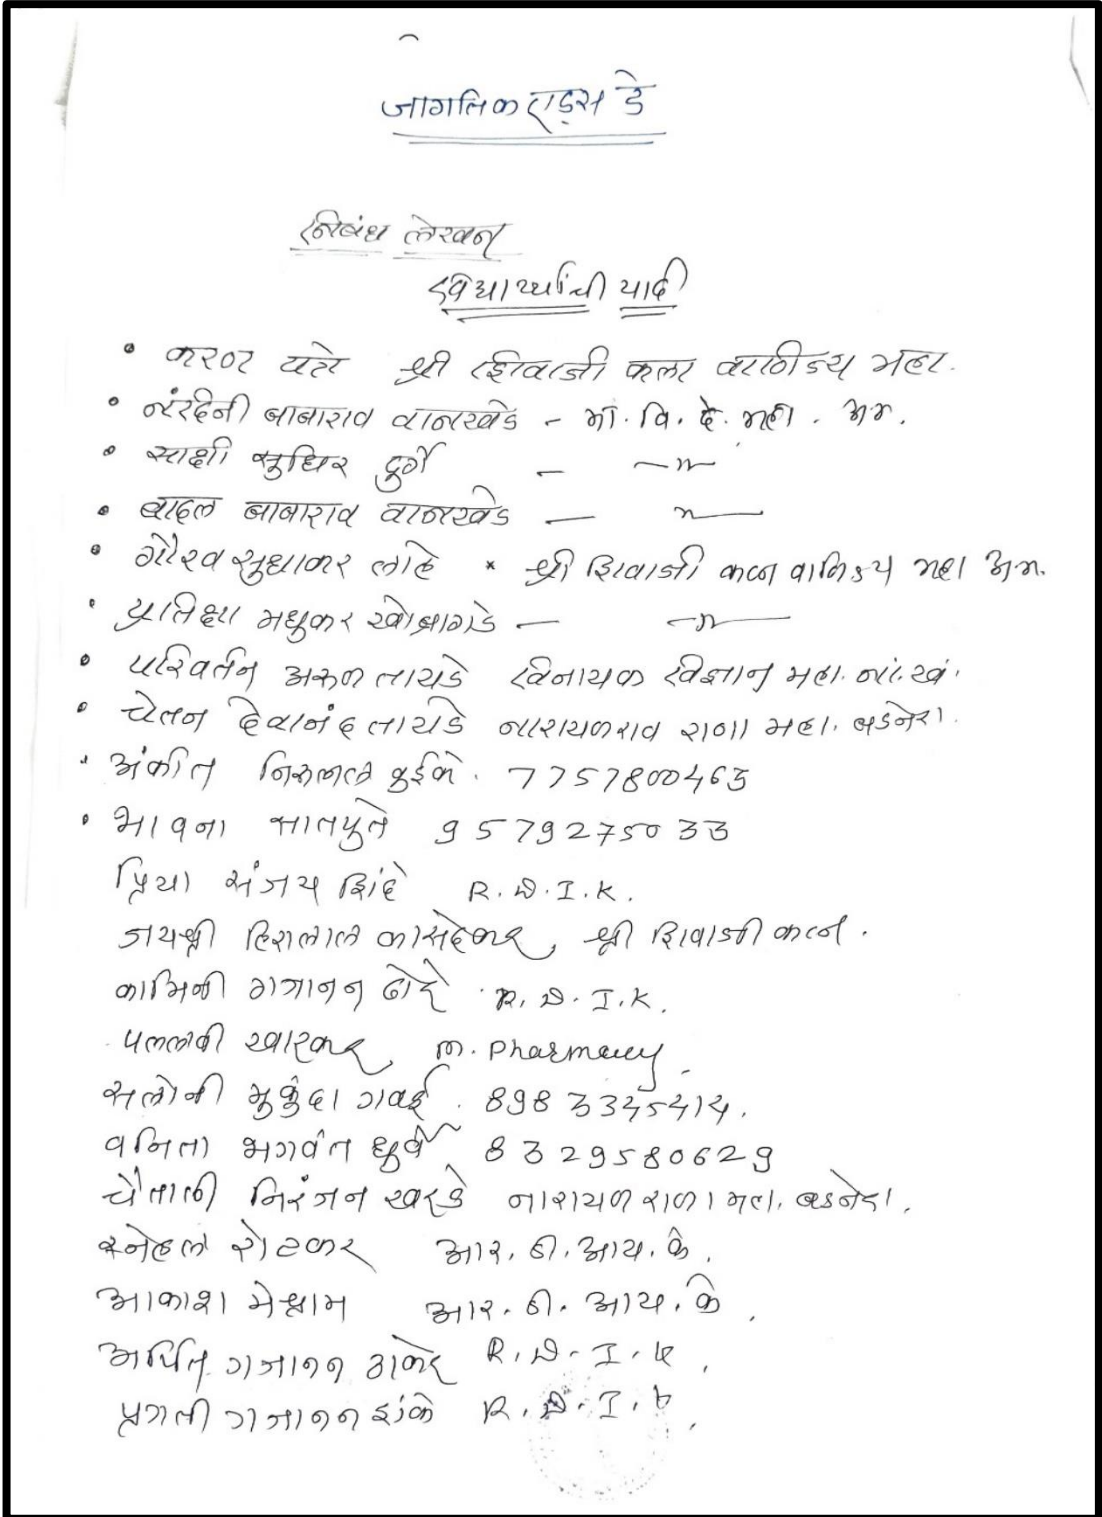 जागतिक एड्स डे
निबंध लेखन
विद्यार्थ्यांची यादी
• करण श्री शिवाजी कला वाणिज्य महा.
• नंदिनी बाबाराव वानखडे - भा. वि. दे. महा. अम.
• साक्षी सुधिर दुर्गे - —〃—
• बादल बाबाराव वानखेडे — 〃—
• गौरव सुधाकर लाहे * श्री शिवाजी कला वाणिज्य महा अम.
• प्रतिक्षा मधुकर खोब्रागडे — —〃—
• परिवर्तन अरुण तायडे विनायक विज्ञान महा. नां. खं.
• चेतन देवानंद तायडे नारायणराव राणा महा. बडनेरा.
• अंकीत कुईके. 7757800463
• भावना सातपुते 9579275033
प्रिया संजय शिंदे R.D.I.K.
जयश्री हिरालाल कासदेकर, श्री शिवाजी कला.
कामिनी गजानन ढोरे R.D.I.K.
पल्लवी खारकर, M. Pharmacy.
सलोनी मुकुंदा गवई. 8983345414.
वनिता भगवंत धुर्वे 8329580629
चैताली निरंजन खरडे नारायण राणा महा. बडनेरा.
स्नेहल रोटकर आर. डी. आय. के.
आकाश मेश्राम आर. डी. आय. के.
अर्पित गजानन ठाकरे R.D.I.K.
प्रगती गजानन डांके R.D.I.K.